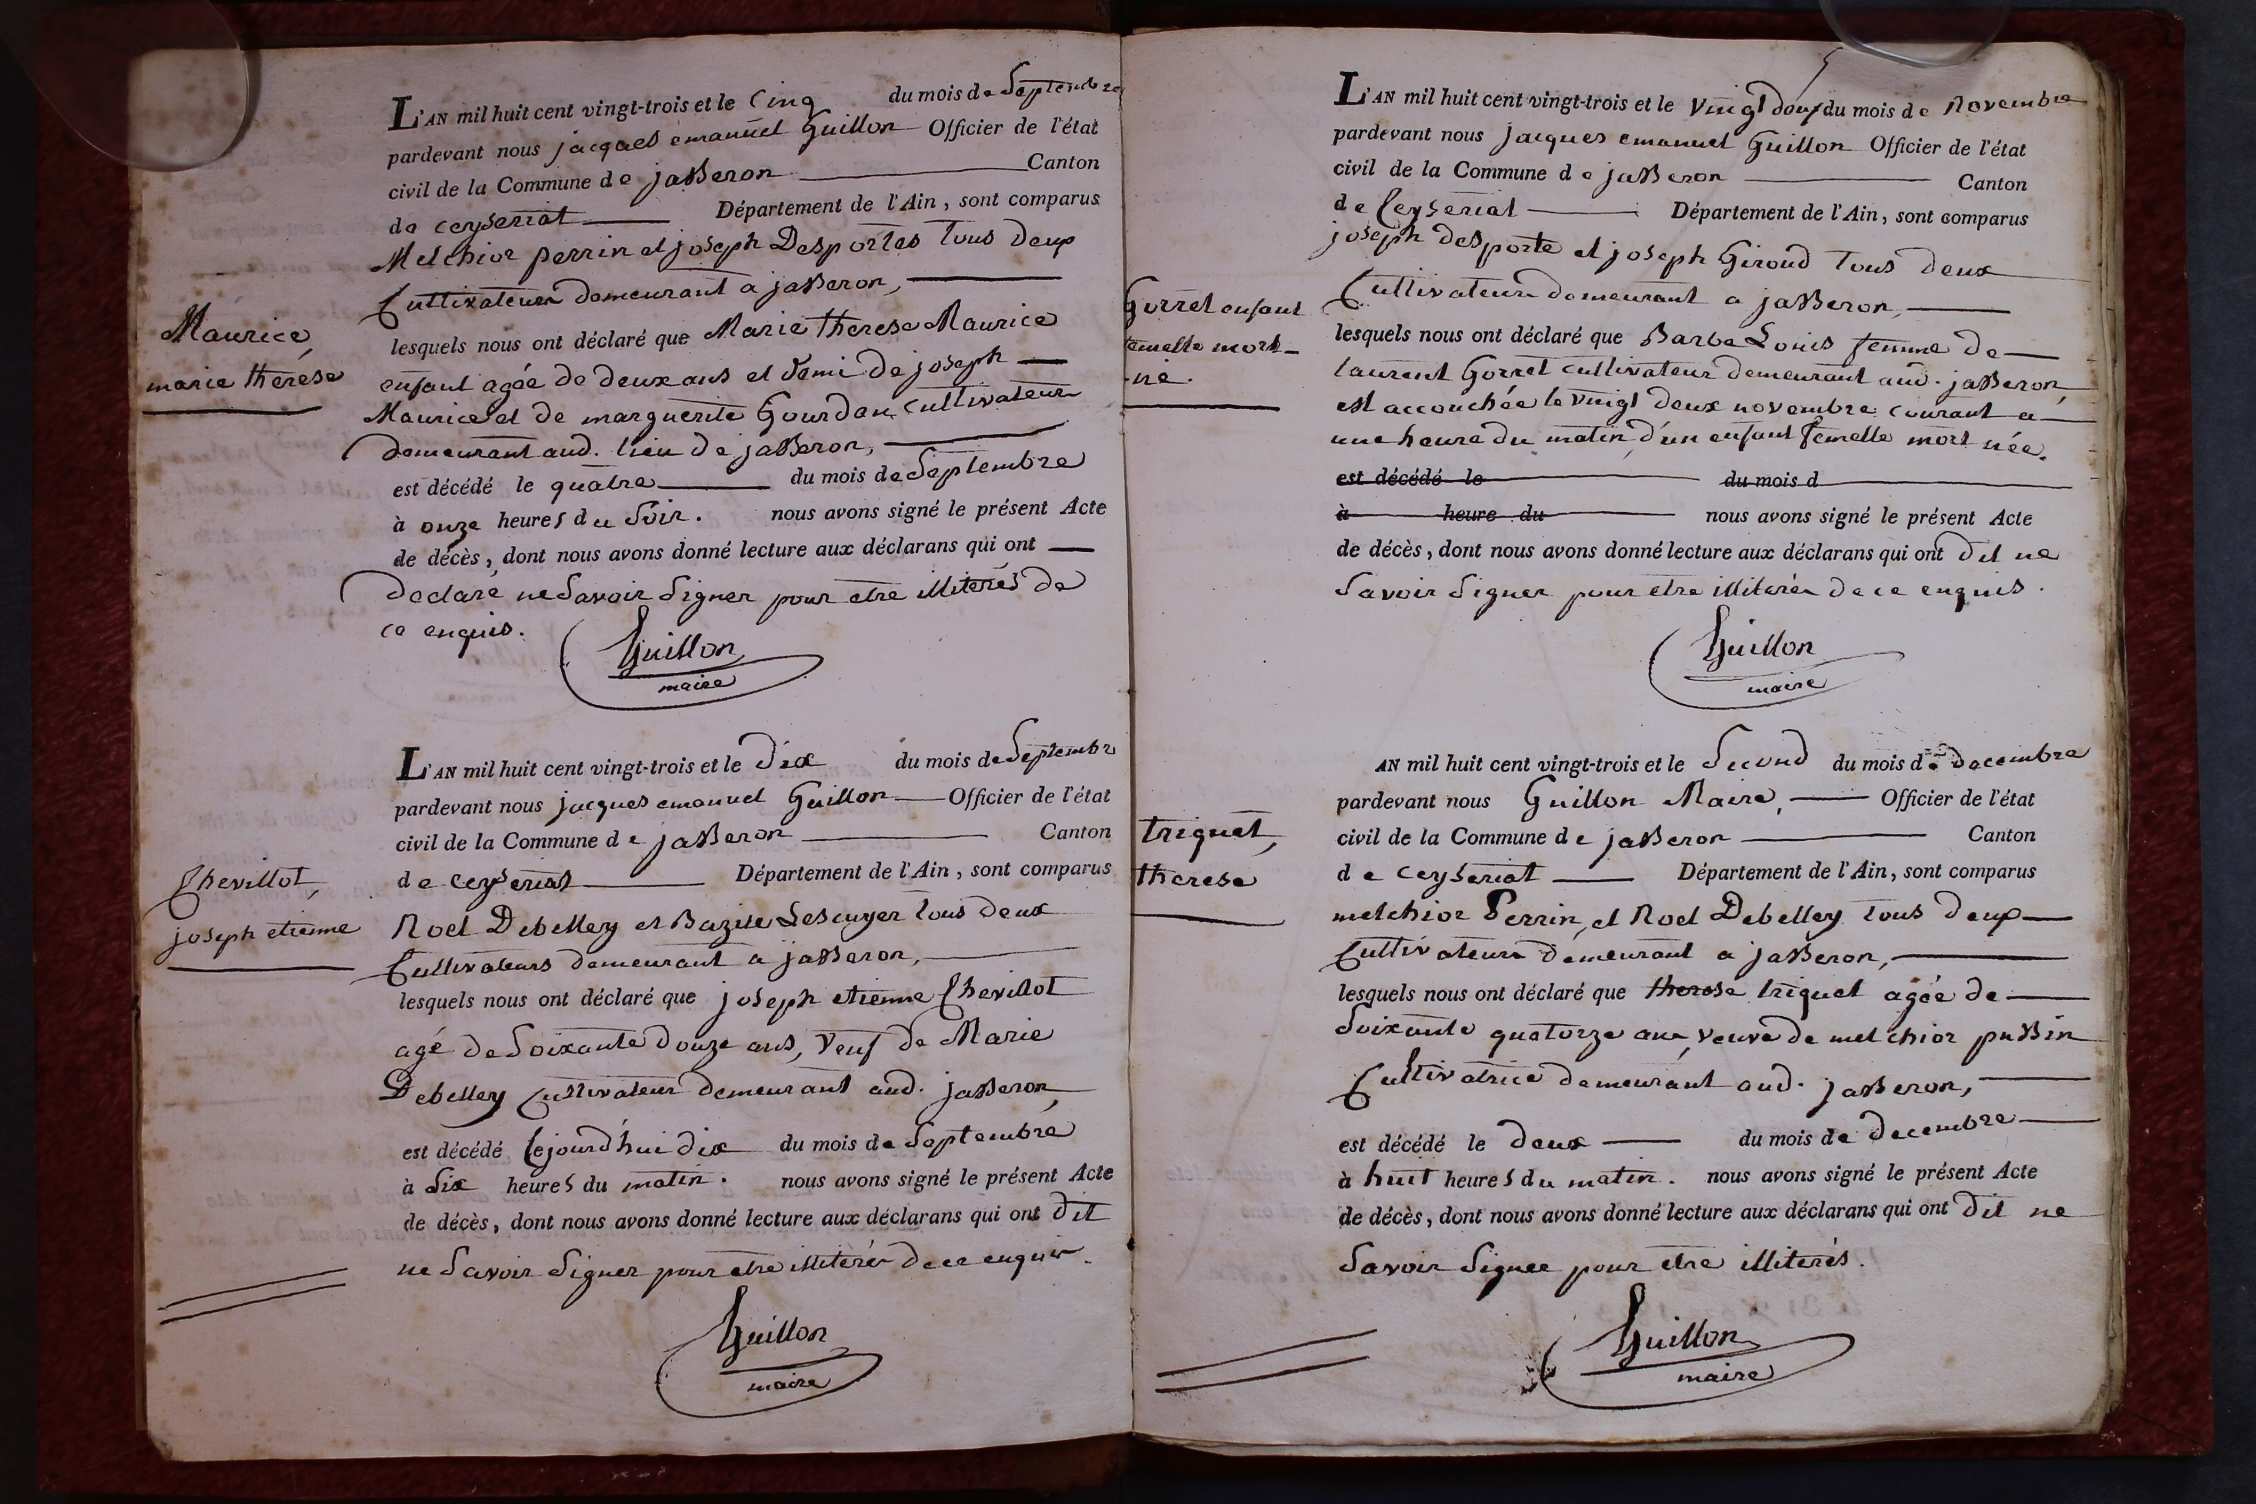 L'AN mil huit cent vingt-trois et le Cinq du mois de Septembre
pardevant nous jacques emanuel Guillon Officier de l'état
civil de la Commune de jasseron Canton
de ceyseriat Département de l'Ain, sont comparus
Melchior perrin et joseph Desportes Tous Deux
Cultivateurs demeurant a jasseron,
Maurice,
marie thérèse
lesquels nous ont déclaré que Marie therese Maurice
enfant agée de deux ans et demi de joseph
Maurice et de marguerite Gourdan Cultivateur
demeurant aud. lieu de jasseron,
est décédé le quatre du mois de Septembre
à onze heures du Soir. nous avons signé le présent Acte
de décès, dont nous avons donné lecture aux déclarans qui ont
declaré ne Savoir Signer pour etre illiterés de
ce enquis.
Guillon
maire
L'AN mil huit cent vingt-trois et le Dix du mois de Septembre
pardevant nous jacques emanuel Guillon Officier de l'état
civil de la Commune de jasseron Canton
de ceyseriat Département de l'Ain, sont comparus
Chevillot,
joseph etienne
Noel Debelley et Bazile Lescuyer Tous deux
Cultivateurs demeurant a jasseron,
lesquels nous ont déclaré que joseph etienne Chevillot
agé de Soixante douze ans, Veuf de Marie
Debelley Cultivateur demeurant aud. jasseron,
est décédé Cejourd'hui dix du mois de Septembre
à Six heures du matin. nous avons signé le présent Acte
de décès, dont nous avons donné lecture aux déclarans qui ont dit
ne Savoir Signer pour etre illiterés de ce enquis.
Guillon
maire
5
L'AN mil huit cent vingt-trois et le Vingt deux du mois de Novembre
pardevant nous jacques emanuel Guillon Officier de l'état
civil de la Commune de jasseron Canton
de Ceyseriat Département de l'Ain, sont comparus
joseph desporte et joseph Giroud Tous deux
Cultivateurs demeurant a jasseron,
Gorret enfant
femelle mort-
-né.
lesquels nous ont déclaré que Barbe Louis femme de
laurent Gorret cultivateur demeurant aud. jasseron,
est accouchée le vingt deux novembre courant a
une heure du matin, d'un enfant femelle mort née.
est décédé le du mois d
à heure du nous avons signé le présent Acte
de décès, dont nous avons donné lecture aux déclarans qui ont dit ne
Savoir Signer pour etre illiterés de ce enquis.
Guillon
maire
AN mil huit cent vingt-trois et le Second du mois de decembre
pardevant nous Guillon Maire, Officier de l'état
civil de la Commune de jasseron Canton
de Ceyseriat Département de l'Ain, sont comparus
triquet,
therese
melchior Perrin, et Noel Debelley Tous deux
Cultivateurs demeurant a jasseron,
lesquels nous ont déclaré que therese triquet agée de
Soixante quatorze ans, veuve de melchior pussin
Cultivatrice demeurant aud. jasseron,
est décédé le deux du mois de decembre
à huit heures du matin. nous avons signé le présent Acte
de décès, dont nous avons donné lecture aux déclarans qui ont dit ne
Savoir Signer pour etre illiterés.
Guillon
maire